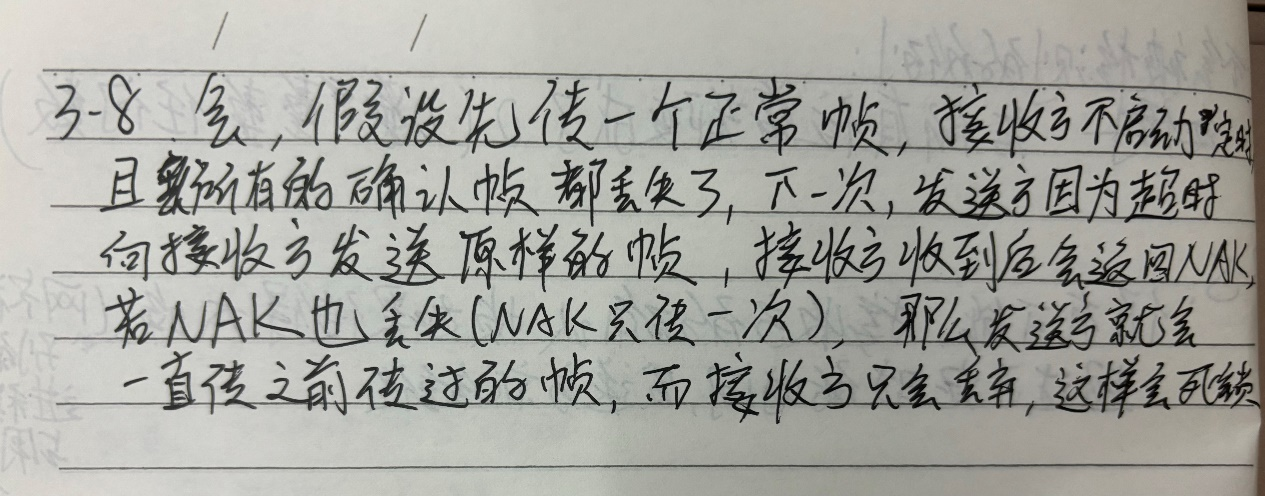 3-8 会，假设先传一个正常帧，接收方不启动定时
且所有的确认帧都丢失了，下一次，发送方因为超时
向接收方发送原样的帧，接收方收到后会返回NAK，
若NAK也丢失(NAK只传一次)，那么发送方就会
一直传之前传过的帧，而接收方只会丢弃，这样会死锁